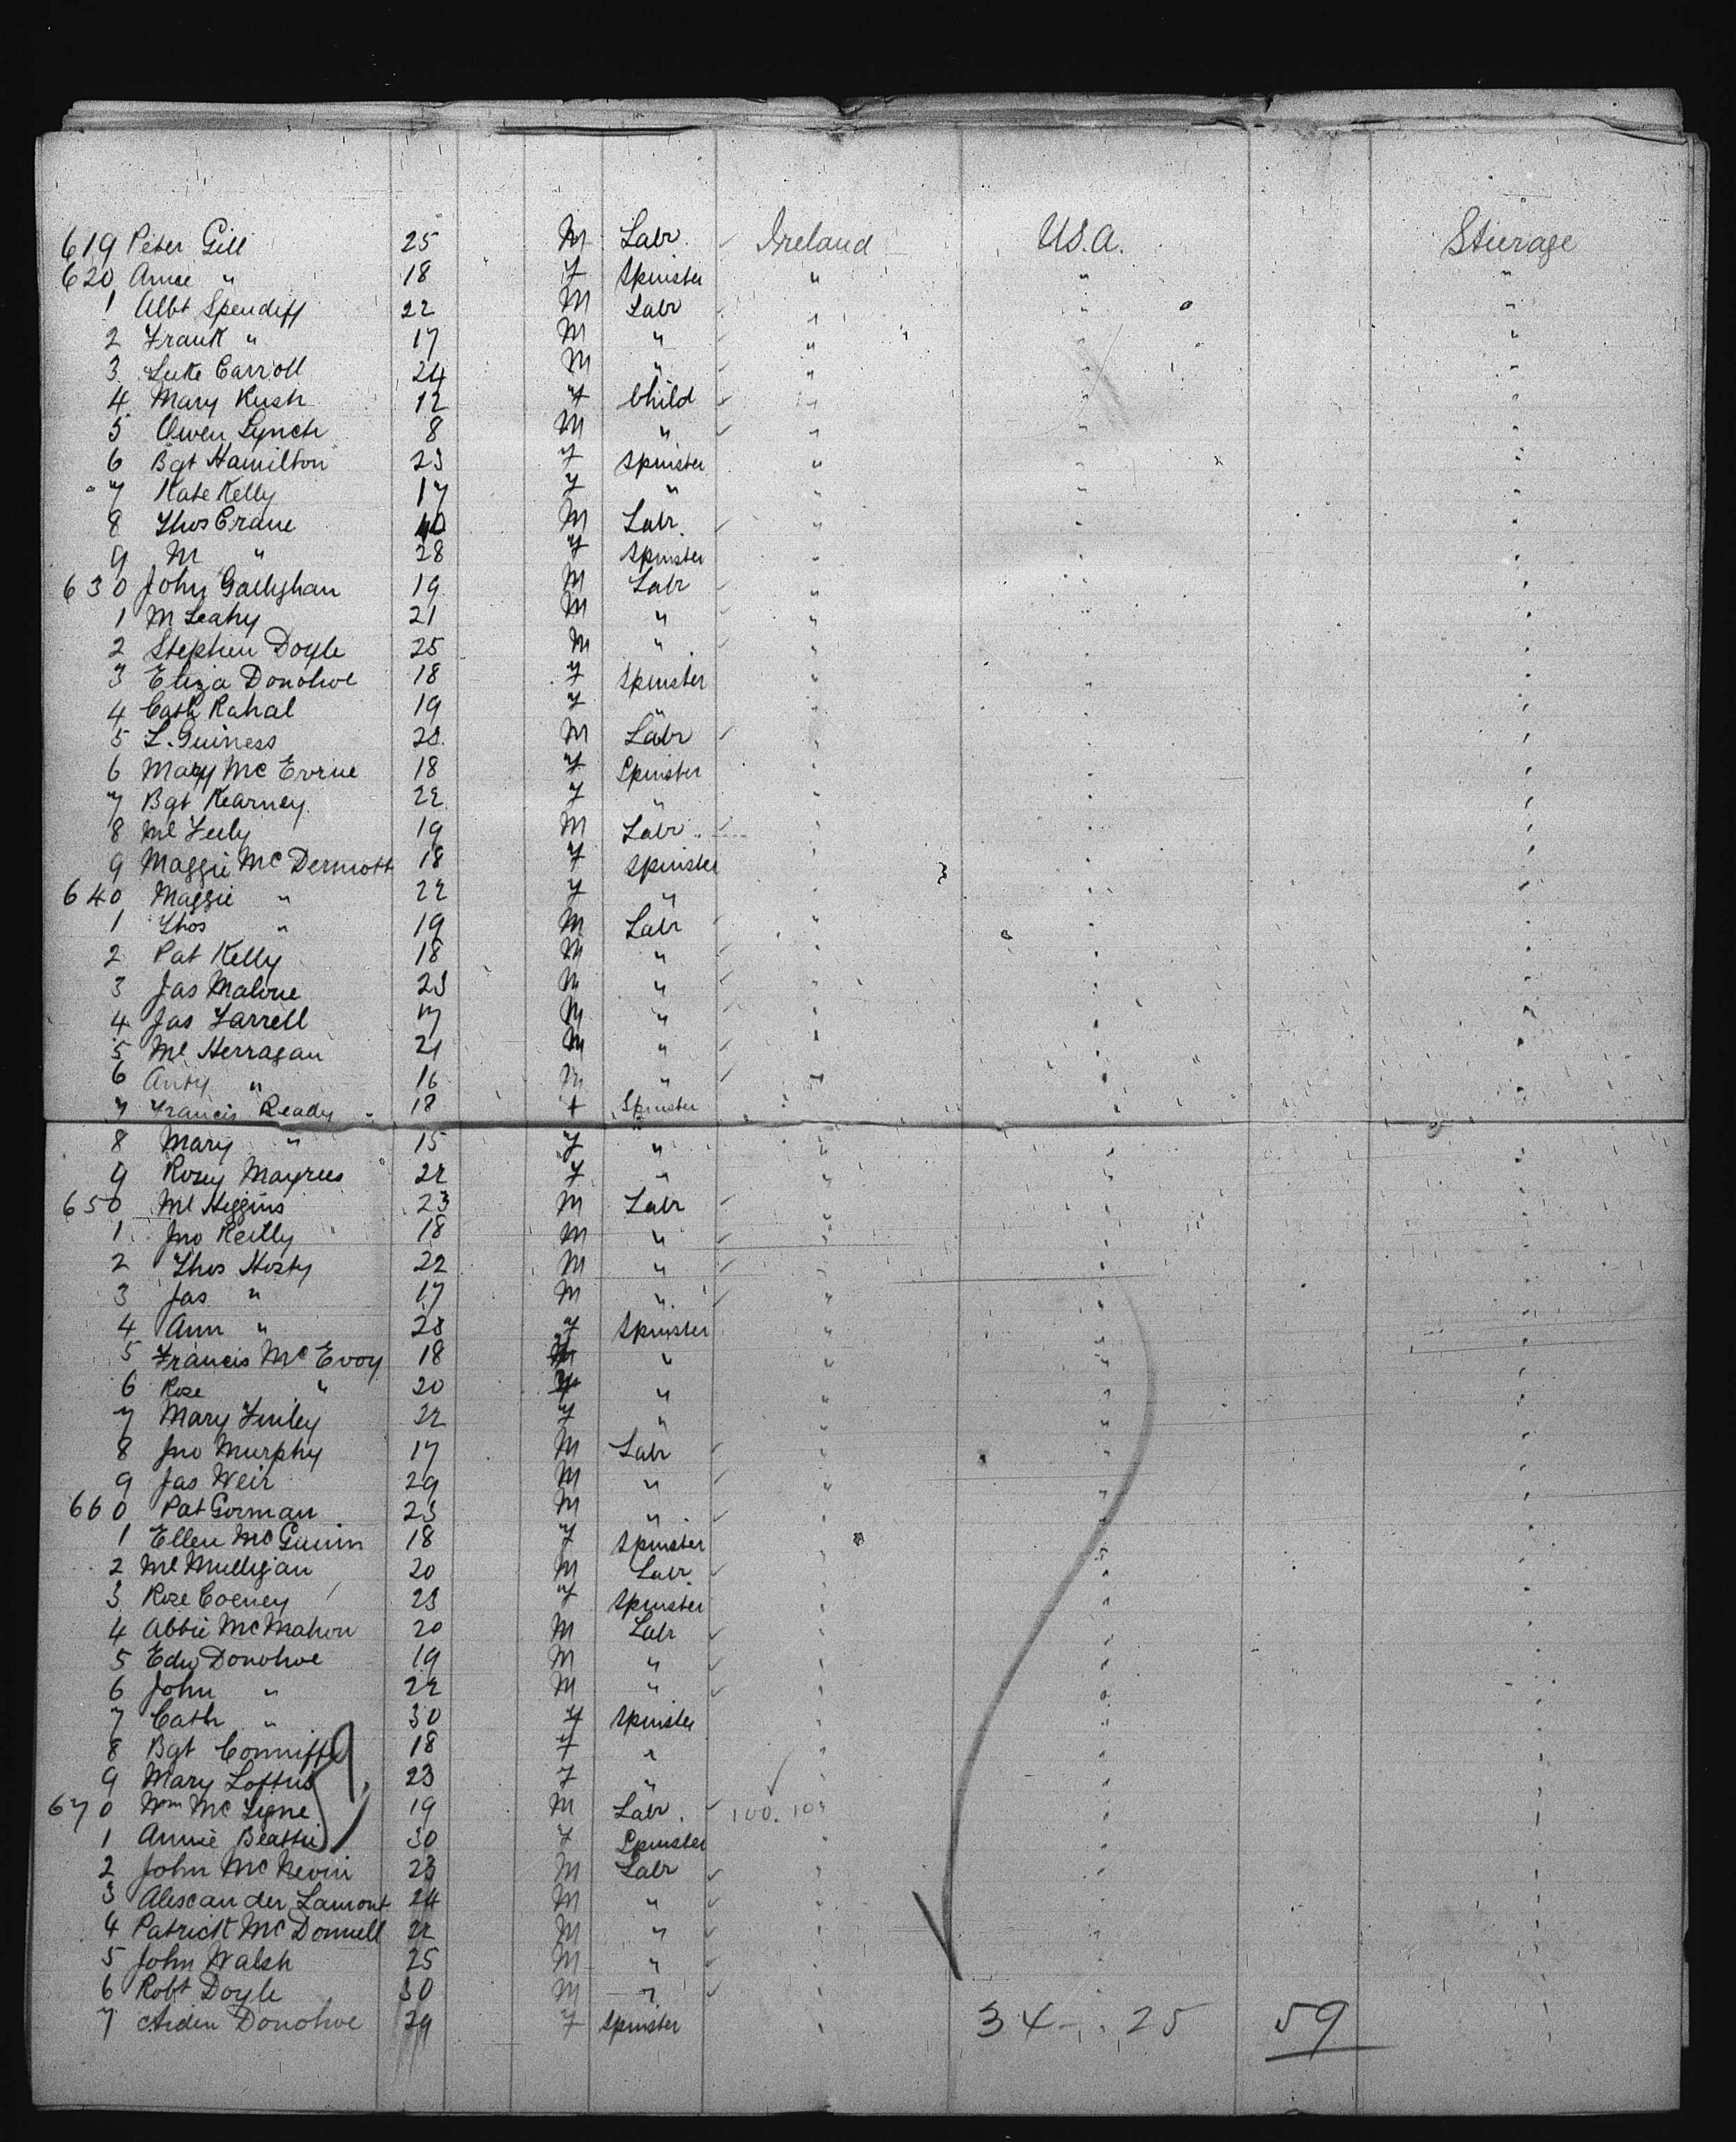 619 Peter Gill 25 M Labr Ireland U.S.A. Steerage
620 Anne " 18 F Spinster " " "
1 Albt Spendiff 22 M Labr " " "
2 Frank " 17 M " " " "
3 Luke Carroll 24 M " " " "
4 Mary Rush 12 F Child " " "
5 Owen Lynch 8 M " " " "
6 Bgt Hamilton 23 F Spinster " " "
7 Kate Kelly 17 F " " " "
8 Thos Crane 40 M Labr " " "
9 M " 28 F Spinster " " "
630 John Gallighan 19 M Labr " " "
1 M Leahy 21 M " " " "
2 Stephen Doyle 25 M " " " "
3 Eliza Donohoe 18 F Spinster " " "
4 Cath Rahal 19 F " " " "
5 L. Guiness 28 M Labr " " "
6 Mary Mc 18 F Spinster " " "
7 Bgt Kearney 22 F " " " "
8 Ml Feely 19 M Labr " " "
9 Maggie McDermott 18 F Spinster " " "
640 Maggie " 22 F " " " "
1 Thos " 19 M Labr " " "
2 Pat Kelly 18 M " " " "
3 Jas Malone 23 M " " " "
4 Jas Farrell 17 M " " " "
5 Ml Herragan 21 M " " " "
6 Anty " 16 M " " " "
7 Francis Ready 18 F Spinster " " "
8 Mary " 15 F " " " "
9 Rosey 22 F " " " "
650 Ml Higgins 23 M Labr " " "
1 Jno Reilly 18 M " " " "
2 Thos Hosty 22 M " " " "
3 Jas " 17 M " " " "
4 Ann " 28 F Spinster " " "
5 Francis McEvoy 18 F " " " "
6 Rose " 20 F " " " "
7 Mary Finley 22 F " " " "
8 Jno Murphy 17 M Labr " " "
9 Jas Weir 29 M " " " "
660 Pat Gorman 23 M " " " "
1 Ellen McGuinn 18 F Spinster " " "
2 Ml Mulligan 20 M Labr " " "
3 Rose 23 F Spinster " " "
4 Abbie McMahon 20 M Labr " " "
5 Edw Donohoe 19 M " " " "
6 John " 22 M " " " "
7 Cath " 30 F Spinster " " "
8 Bgt Conniffe 18 F " " " "
9 Mary Loftus 23 F " " " "
670 Wm Mc 19 M Labr " " "
1 Annie Beattie 30 F Spinster " " "
2 John McNevin 23 M Labr " " "
3 Alexander Lamont 24 M " " " "
4 Patrick McDonnell 22 M " " " "
5 John Walsh 25 M " " " "
6 Robt Doyle 30 M " " " "
7 Aiden Donohoe 29 F Spinster " " "
34 - 25 59